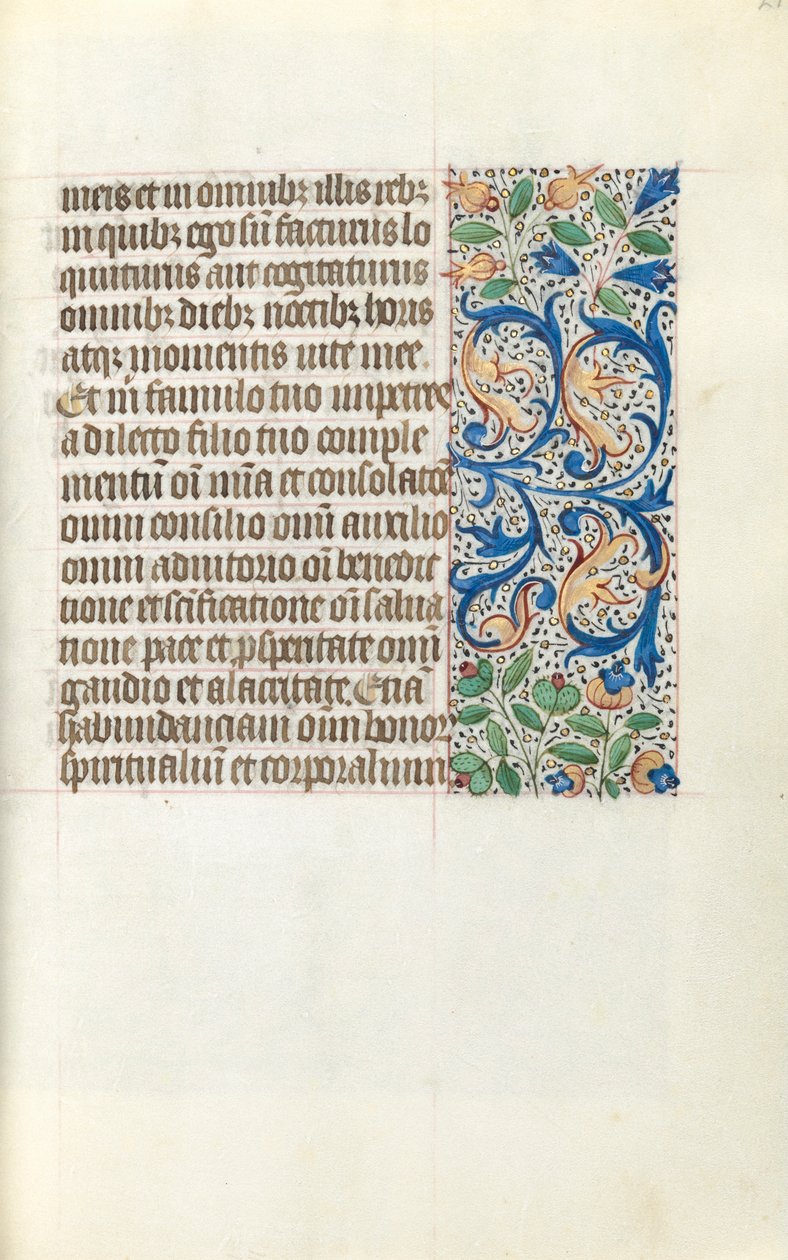 meis et in omnibꝫ illis rebꝫ
in quibꝫ ego sū facturus lo
quuturus aut cogitaturus
omnibꝫ diebꝫ noctibꝫ horis
atqꝫ momentis uite mee.
Et m̄ famulo tuo impetres
a dilecto filio tuo comple
mentū oī et consolatōē
omni consilio omī auxilio
omni adiutorio oī benedic
tione et scīficatione oī salua
tione pace et ꝓsperitate omī
gaudio et alacritate. Etiā
habundanciam oīm bonor
spiritualiū et corporalium.